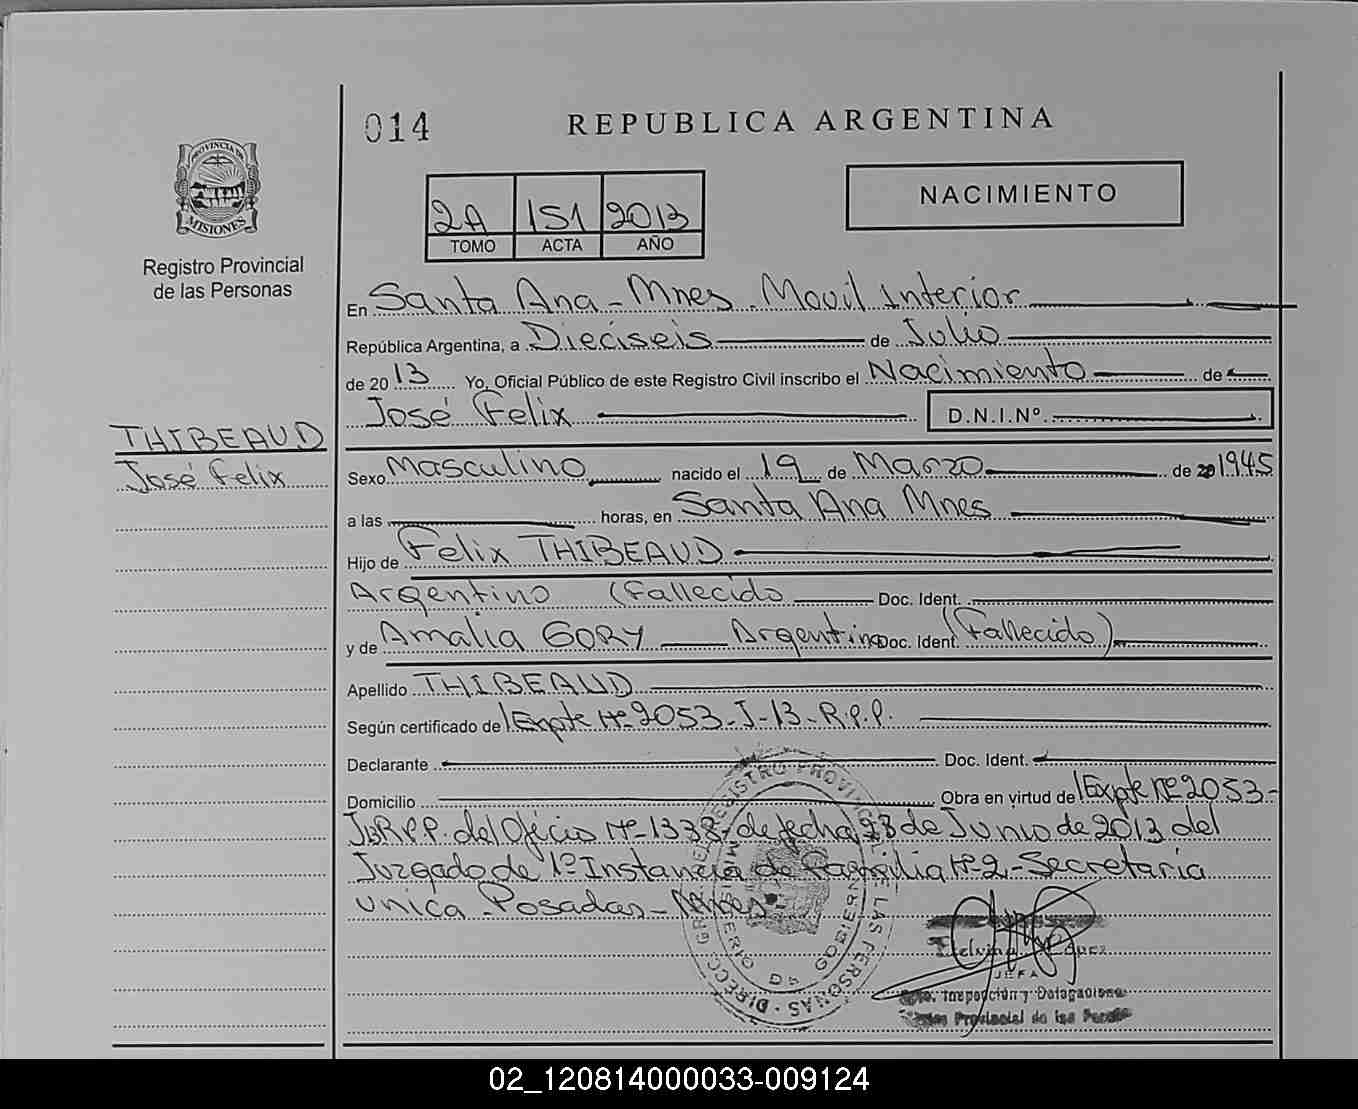 014
REPUBLICA ARGENTINA
PROVINCIA DE
MISIONES
Registro Provincial
de las Personas
2A 151 2013
TOMO ACTA AÑO
NACIMIENTO
En Santa Ana - Mnes. Movil Interior
República Argentina, a Dieciseis de Julio
de 2013 Yo, Oficial Público de este Registro Civil inscribo el Nacimiento de
José Felix D.N.I.Nº
THIBEAUD
José Felix
Sexo Masculino nacido el 19 de Marzo de 1945
a las horas, en Santa Ana Mnes
Hijo de Felix THIBEAUD
Argentino (Fallecido Doc. Ident.
y de Amalia GORY Argentina Doc. Ident. (Fallecido)
Apellido THIBEAUD
Según certificado de Expte Nº 2053-J-13-R.P.P.
Declarante Doc. Ident.
Domicilio Obra en virtud de Expte Nº 2053-
del Oficio Nº-1338 de fecha de Junio de 2013 del
Juzgado de 1º Instancia de Familia Nº-2-Secretaria
unica-Posadas-Mnes
DIRECC. GRAL. REGISTRO PROVINCIAL DE LAS PERSONAS
MINISTERIO DE GOBIERNO
López
JEFA
Inspección y Delegaciones
Provincial de las
02_120814000033-009124